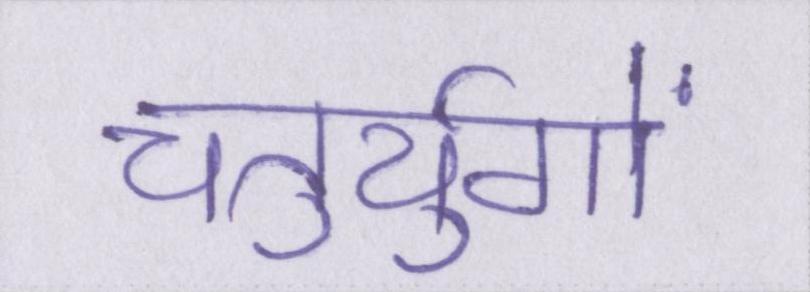 चतुर्युगों